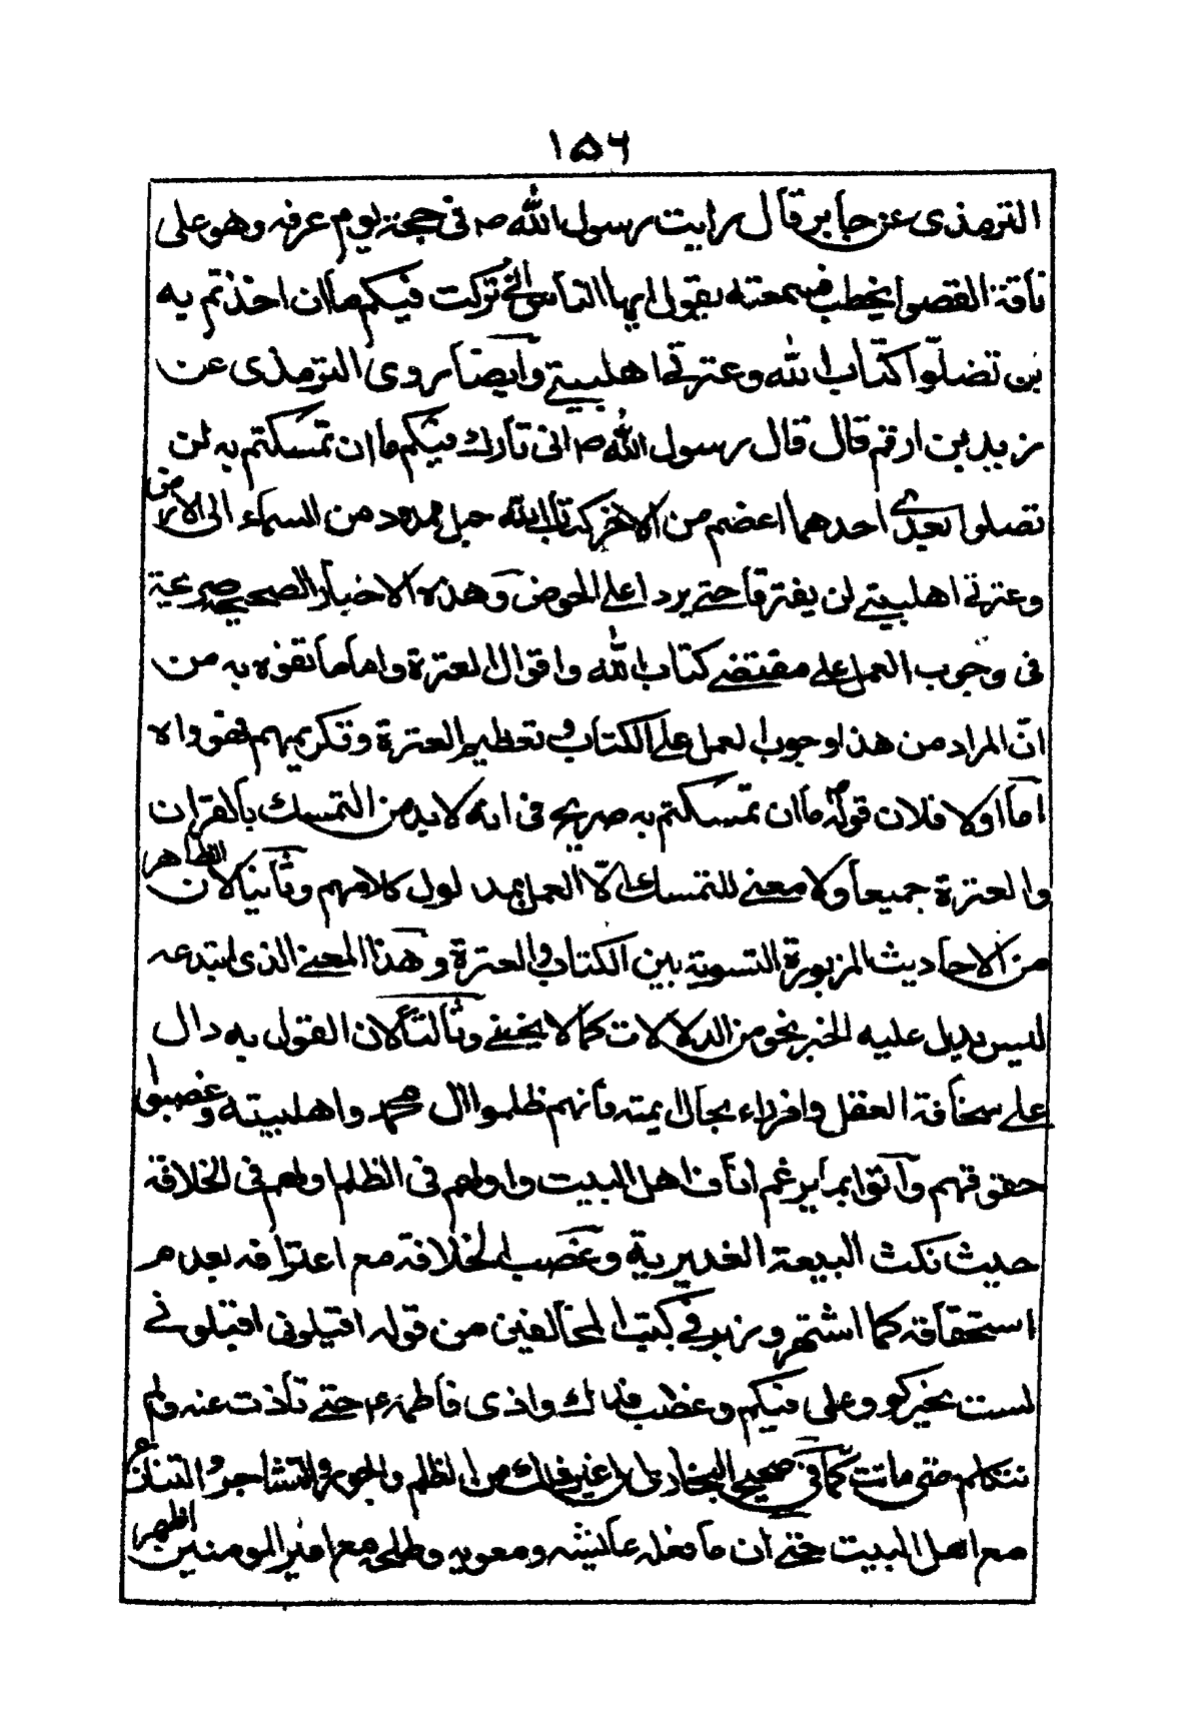 ١٥٦
الترمذى عن جابر قال رايت رسول الله ص فى حجته يوم عرفه وهو على
ناقة القصوا يخطب فسمعته يقول ايها الناس انى تركت فيكم ما ان اخذتم به
لن تضلوا كتاب الله وعترتى اهلبيتى وايضا روى الترمذى عن
زيد بن ارقم قال قال رسول الله ص انى تارك فيكم ما ان تمسكتم به لن
تضلوا بعدى احدهما اعضم من الاخر كتاب الله حبل ممدود من السماء الى الارض
وعترتى اهلبيتى لن يفترقا حتى يردا على الحوض وهذه الاخبار الصحيحه صريحة
فى وجوب العمل على مقتضى كتاب الله واقوال العترة واما ما تفوه به من
انّ المراد من هذا وجوب العمل على الكتاب و تعظيم العترة وتكريمهم فهو واه
اما اولا فلان قوله ما ان تمسكتم به صريح فى انه لا بد من التمسك بالقران
والعترة جميعا ولا معنى للتمسك الّا العمل بمدلول كلامهم وثانيا لان الظاهر
من الاحاديث المزبورة التسوية بين الكتاب والعترة وهذا المعنى الذى ابتدعه
ليس يدل عليه الخبر بنحو من الدلالات كما لا يخفى وثالثا لان القول به دال
على سخافة العقل وافراء بحال ائمته فانهم ظلموا ال محمد واهلبيته وغصبوا
حقوقهم واتوا بما يرغم اناف اهل البيت واولهم فى الظلم اولهم فى الخلافة
حيث نكث البيعة الغديرية وغصب الخلافة مع اعترافه بعدم
استحقاقه كما اشتهر و زبر فى كتب المخالفين من قوله اقيلونى اقيلونى
لست بخيركم وعلى فيكم وغضب فدك واذى فاطمة ع حتى تأذت عنه ولم
تتكلم حتى ماتت كما فى صحيح البخارى الى غير ذلك من الظلم والجور والتشاجر و التنازع
مع اهل البيت حتى ان ما فعله عايشه ومعويه وطلحه مع امير المومنين اظهر